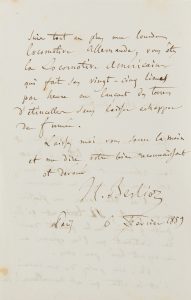 suis tout au plus une lourde
locomotive allemande, vous êtes
la Locomotive Américaine
qui fait ses vingt-cinq lieues
par heure en lançant des torrents
d'étincelles sans laisser échapper
de fumée.
Laissez moi vous serrer la main
et me dire votre bien reconnaissant
et dévoué
H. Berlioz
Paris 6 Février 1859